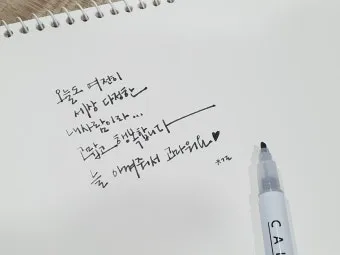 오늘도 여전히
세상 다정한
내사람이라...
고맙고 행복합니다
늘 아껴줘서 고마워요♥
CA